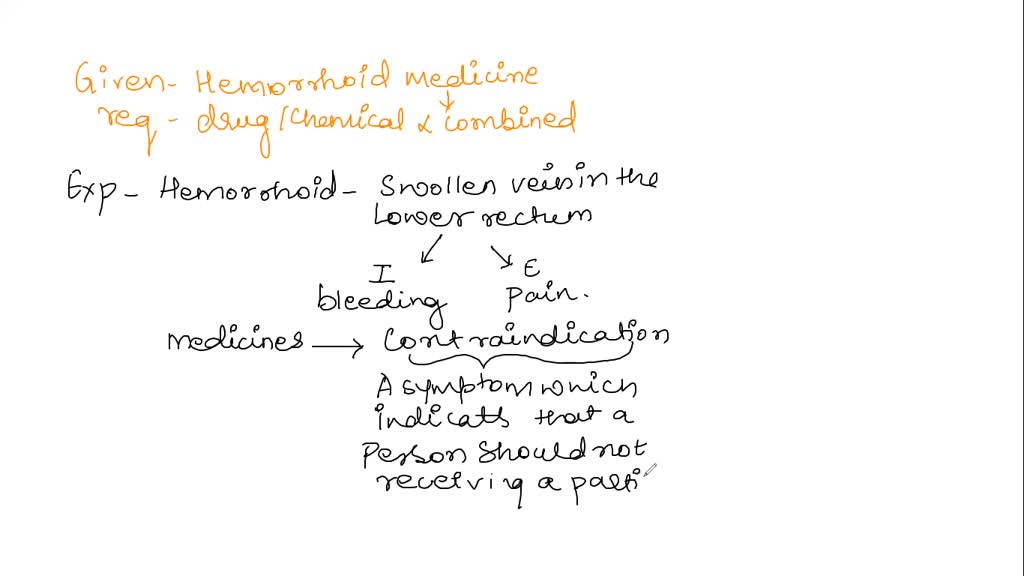 Given- Hemorrhoid medicine
req - drug/Chemical & combined
Exp - Hemorrhoid - Swollen veins in the
Lower rectum
I E
bleeding Pain.
Medicines → Contraindication
A symptom which
indicatts that a
Person should not
receiving a parti